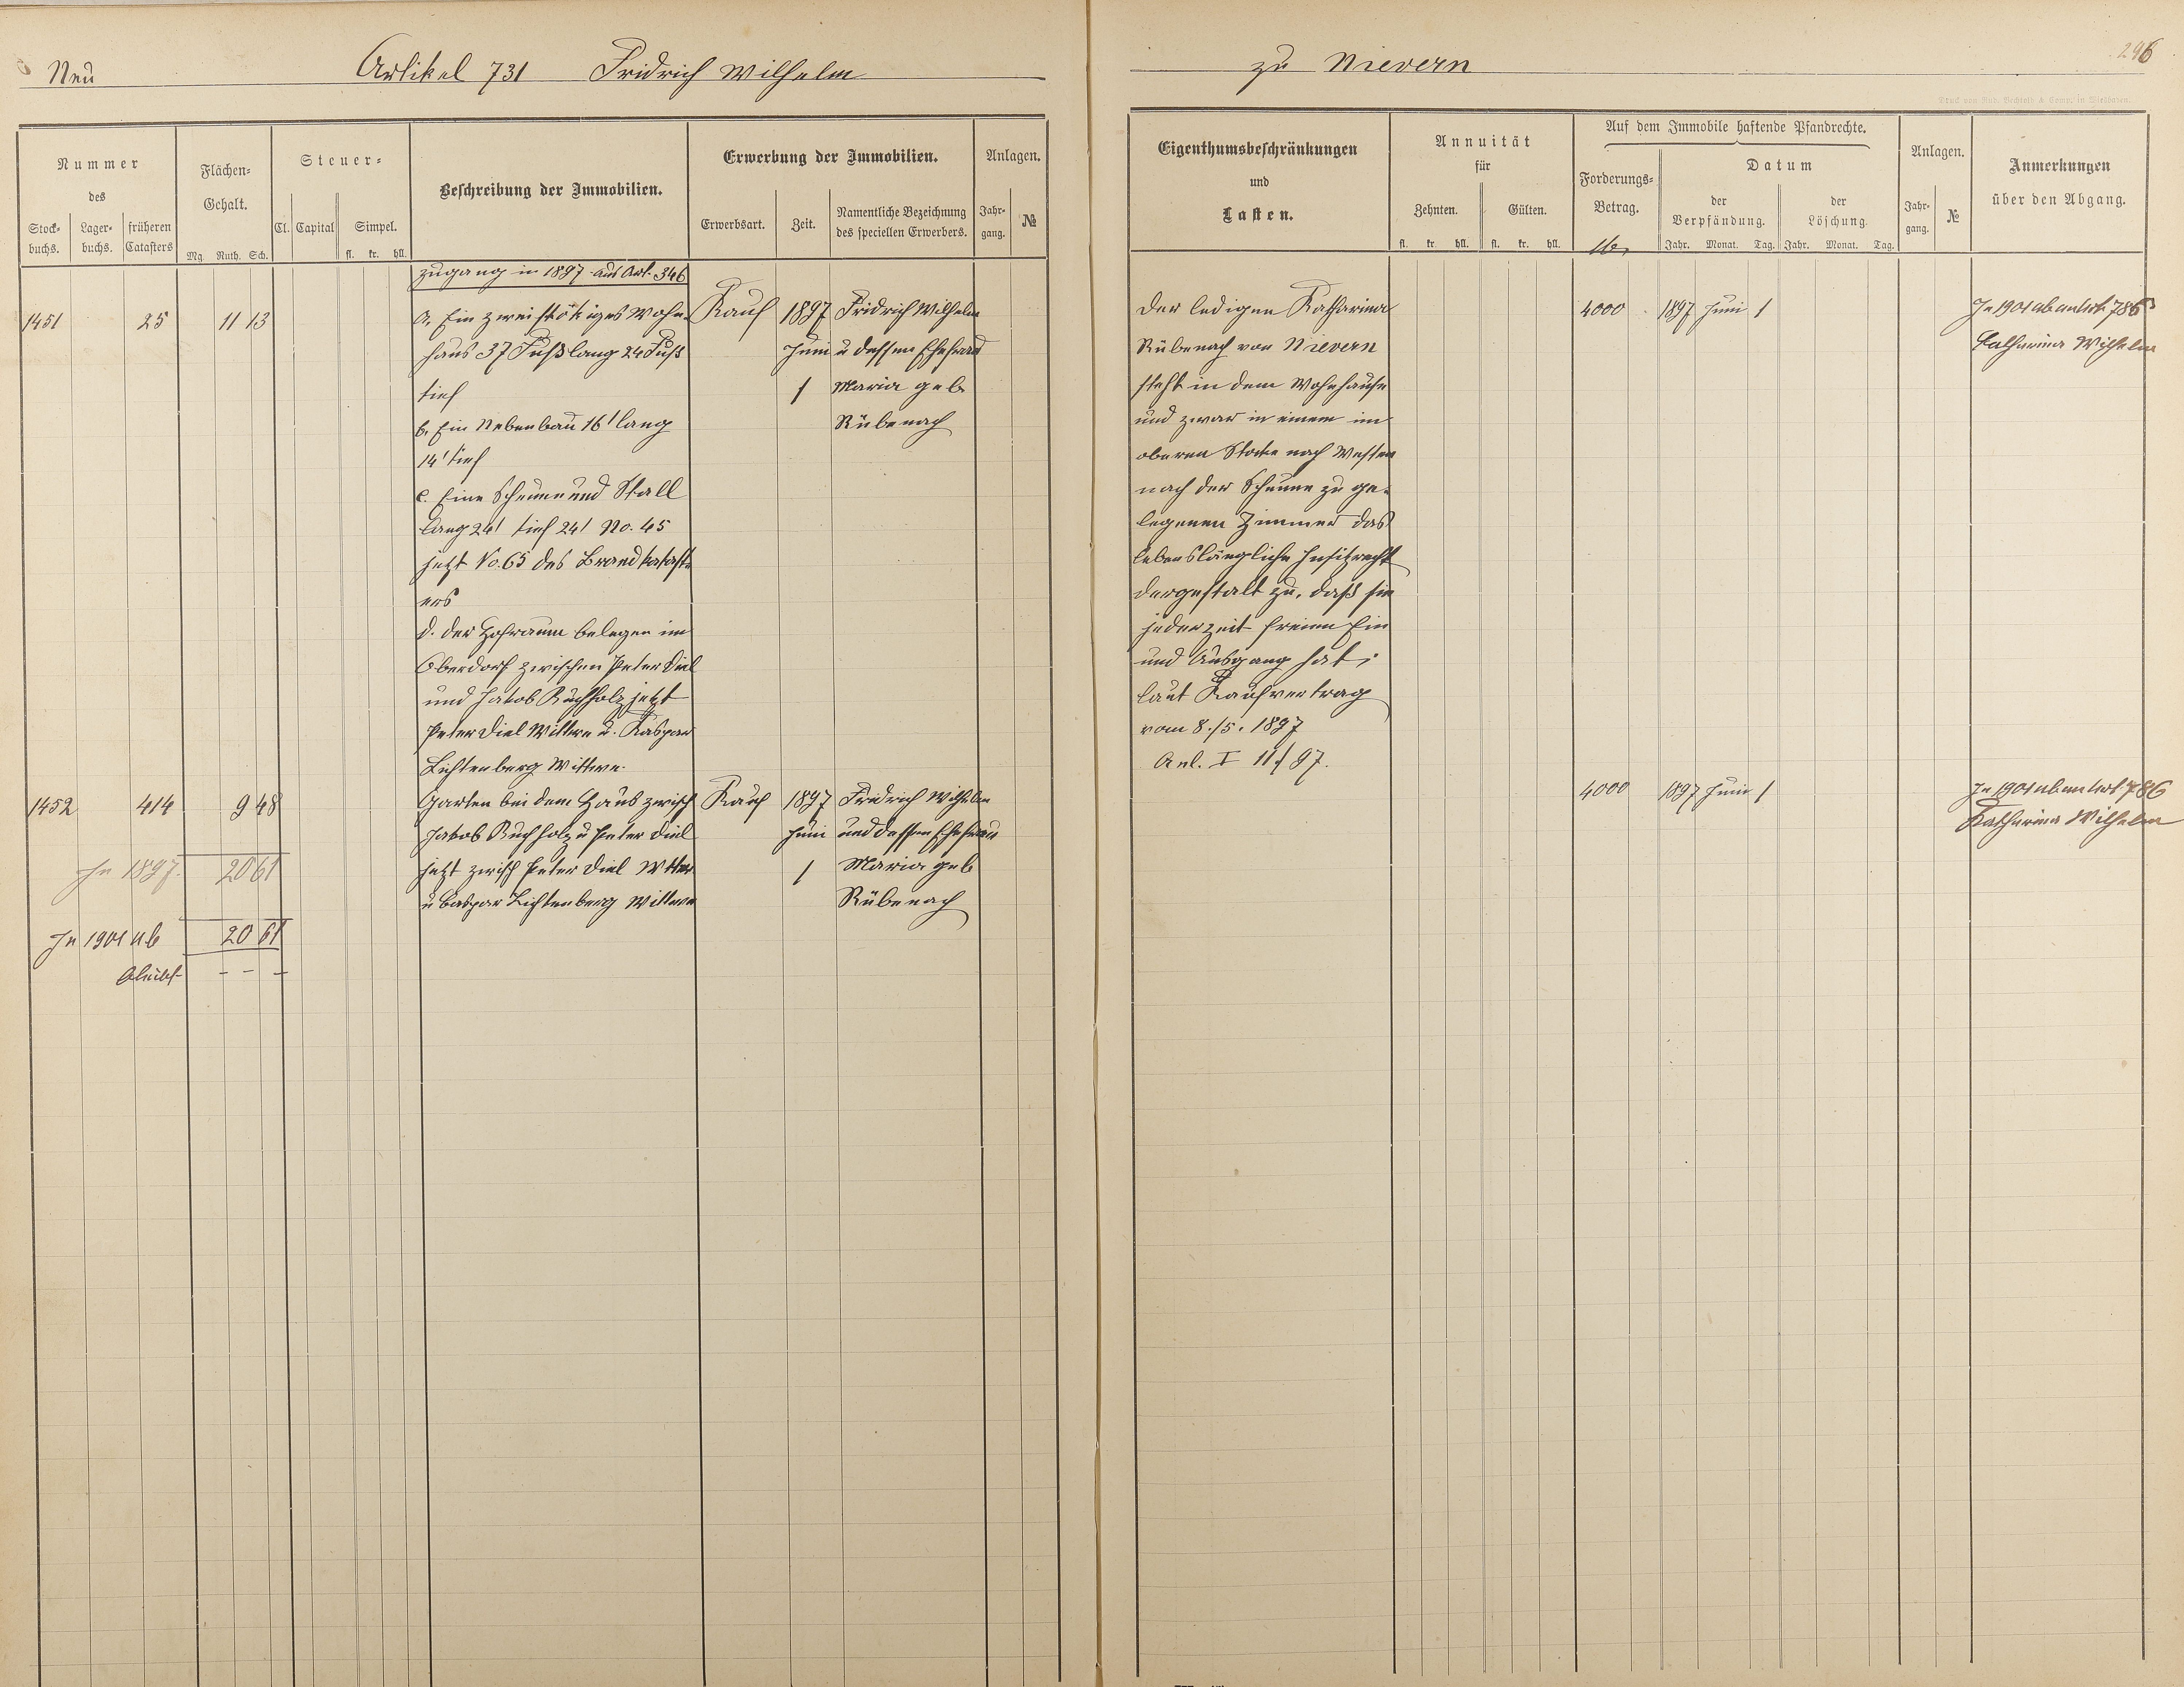 Neu Artikel 731 Fridrich Wilhelm
zu Nievern
296
Nummer
des
Stock-
buchs.
Lager-
buchs.
früheren
Catasters
Flächen-
Gehalt.
Mg. Ruth. Sch.
Steuer-
Cl. Capital Simpel.
fl. kr. hll.
Beschreibung der Immobilien.
Erwerbung der Immobilien.
Erwerbsart. Zeit.
Namentliche Bezeichnung
des speciellen Erwerbers.
Anlagen.
Jahr-
gang.
№
Eigenthumsbeschränkungen
und
Lasten.
Annuität
für
Zehnten. Gülten.
fl. kr. hll. fl. kr. hll.
Auf dem Immobile haftende Pfandrechte.
Forderungs-
Betrag.
Datum
der
Verpfändung.
der
Löschung.
Jahr. Monat. Tag. Jahr. Monat. Tag.
Anlagen.
Jahr-
gang.
№
Anmerkungen
über den Abgang.
Zugang in 1897 aus Art. 346
1451 25 11 13
a. Ein zweistökiges Wohn
haus 37 Fuß lang 24 Fuß
tief
b. Ein Nebenbau 16' lang
14' tief
c. Eine Scheune und Stall
lang 24' tief 24' No. 45
jetzt No. 65 des Brandkatast
ers
d. der Hofraum belegen im
Oberdorf zwischen Peter Diel
und Jakob Buchholz jetzt
Peter Diel Wittwe u. Kaspar
Lichtenberg Wittwe.
Kauf 1897 Fridrich Wilhelm
Juni u dessen Ehefrau
1 Maria geb
Rübenach
Der ledigen Katharina
Rübenach von Nievern
steht in dem Wohnhause
und zwar in einem im
oberen Stocke nach Westen
nach der Scheune zu ge-
legenen Zimmer das
lebenslängliche Insitzrecht
dergestalt zu, daß sie
jederzeit freien Ein
und Ausgang hat;
laut Kaufvertrag
vom 8./5. 1897
Anl. I 11/97.
4000 1897 Juni 1
In 1901 ab an Art. 786
Catharina Wilhelm
1452 414 9 48
Garten bei dem Haus zwisch
Jakob Buchholz u Peter Diel
jetzt zwisch Peter Diel Wttwe
u Caspar Lichtenberg Wittwe
Kauf 1897 Fridrich Wilhelm
Juni und dessen Ehefrau
1 Maria geb
Rübenach
4000 1897 Juni 1
In 1901 ab an Art. 786
Katharina Wilhelm
In 1897. 20 61
In 1901 ab 20 61
Bleibt - - -